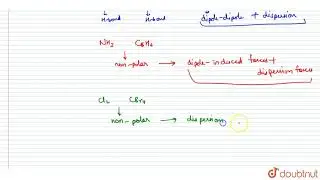 H-bond H-bond dipole-dipole + dispersion
NH3 C6H6
non-polar → dipole-induced forces +
dispersion forces
Cl2 CBr4
non-polar → dispersion
doubtnut